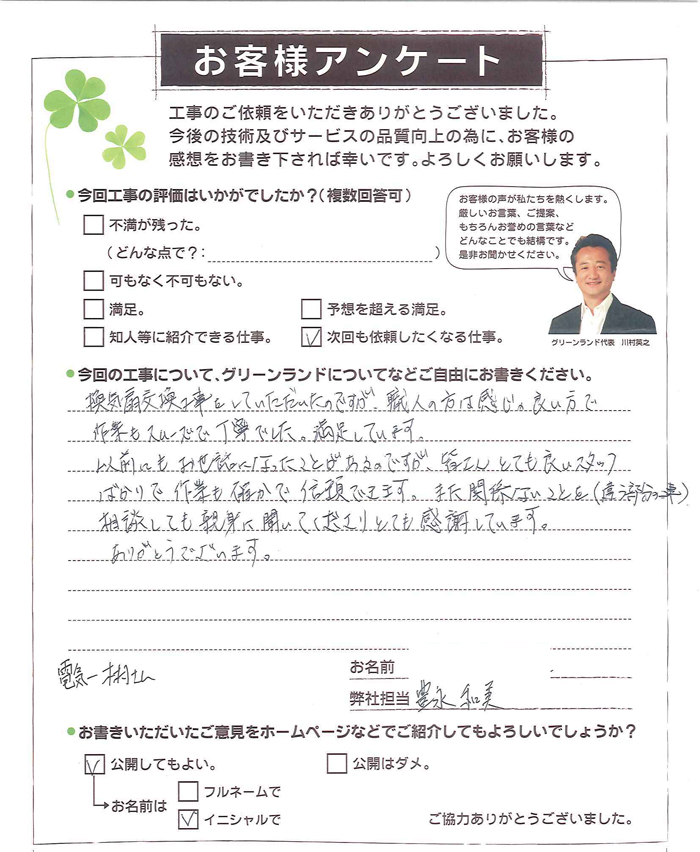 お客様アンケート
工事のご依頼をいただきありがとうございました。
今後の技術及びサービスの品質向上の為に、お客様の
感想をお書き下されば幸いです。よろしくお願いします。
● 今回工事の評価はいかがでしたか?(複数回答可)
不満が残った。
(どんな点で?: )
可もなく不可もない。
満足。
予想を超える満足。
知人等に紹介できる仕事。
次回も依頼したくなる仕事。
お客様の声が私たちを熱くします。
厳しいお言葉、ご提案、
もちろんお誉めの言葉など
どんなことでも結構です。
是非お聞かせください。
グリーンランド代表 川村英之
● 今回の工事について、グリーンランドについてなどご自由にお書きください。
換気扇交換工事をしていただいたのですが、職人の方は感じの良い方で
作業もスムーズで丁寧でした。満足しています。
以前にもお世話になったことがあるのですが、皆さんとても良いスタッフ
ばかりで作業も確かで信頼できます。また関係ないことを(違う部分の工事)
相談しても親身に聞いてくださりとても感謝しています。
ありがとうございます。
電気一
さん
お名前
弊社担当 豊永 和美
● お書きいただいたご意見をホームページなどでご紹介してもよろしいでしょうか?
公開してもよい。
公開はダメ。
お名前は
フルネームで
イニシャルで
ご協力ありがとうございました。